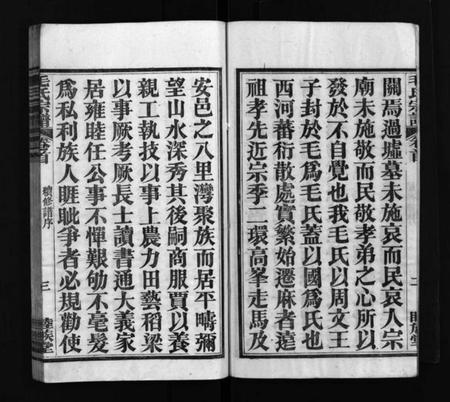 關焉過墟墓未施哀而民哀人宗
廟未施敬而民敬孝弟之心所以
發於不自覺也我毛氏以周文王
子封於毛爲毛氏蓋以國爲氏也
西河蕃衍散處實繁始遷麻者遠
祖孝先近宗季二環高峯走馬及
毛氏宗譜
卷首
二
睦族堂
安邑之八里灣聚族而居平疇彌
望山水深秀其後嗣商服賈以養
親工執技以事上農力田藝稻粱
以事厥考厥長士讀書通大義家
居雍睦任公事不憚艱劬不毫髮
爲私利族人睚眦爭者必規勸使
毛氏宗譜
卷首
續修譜序
三
睦族堂